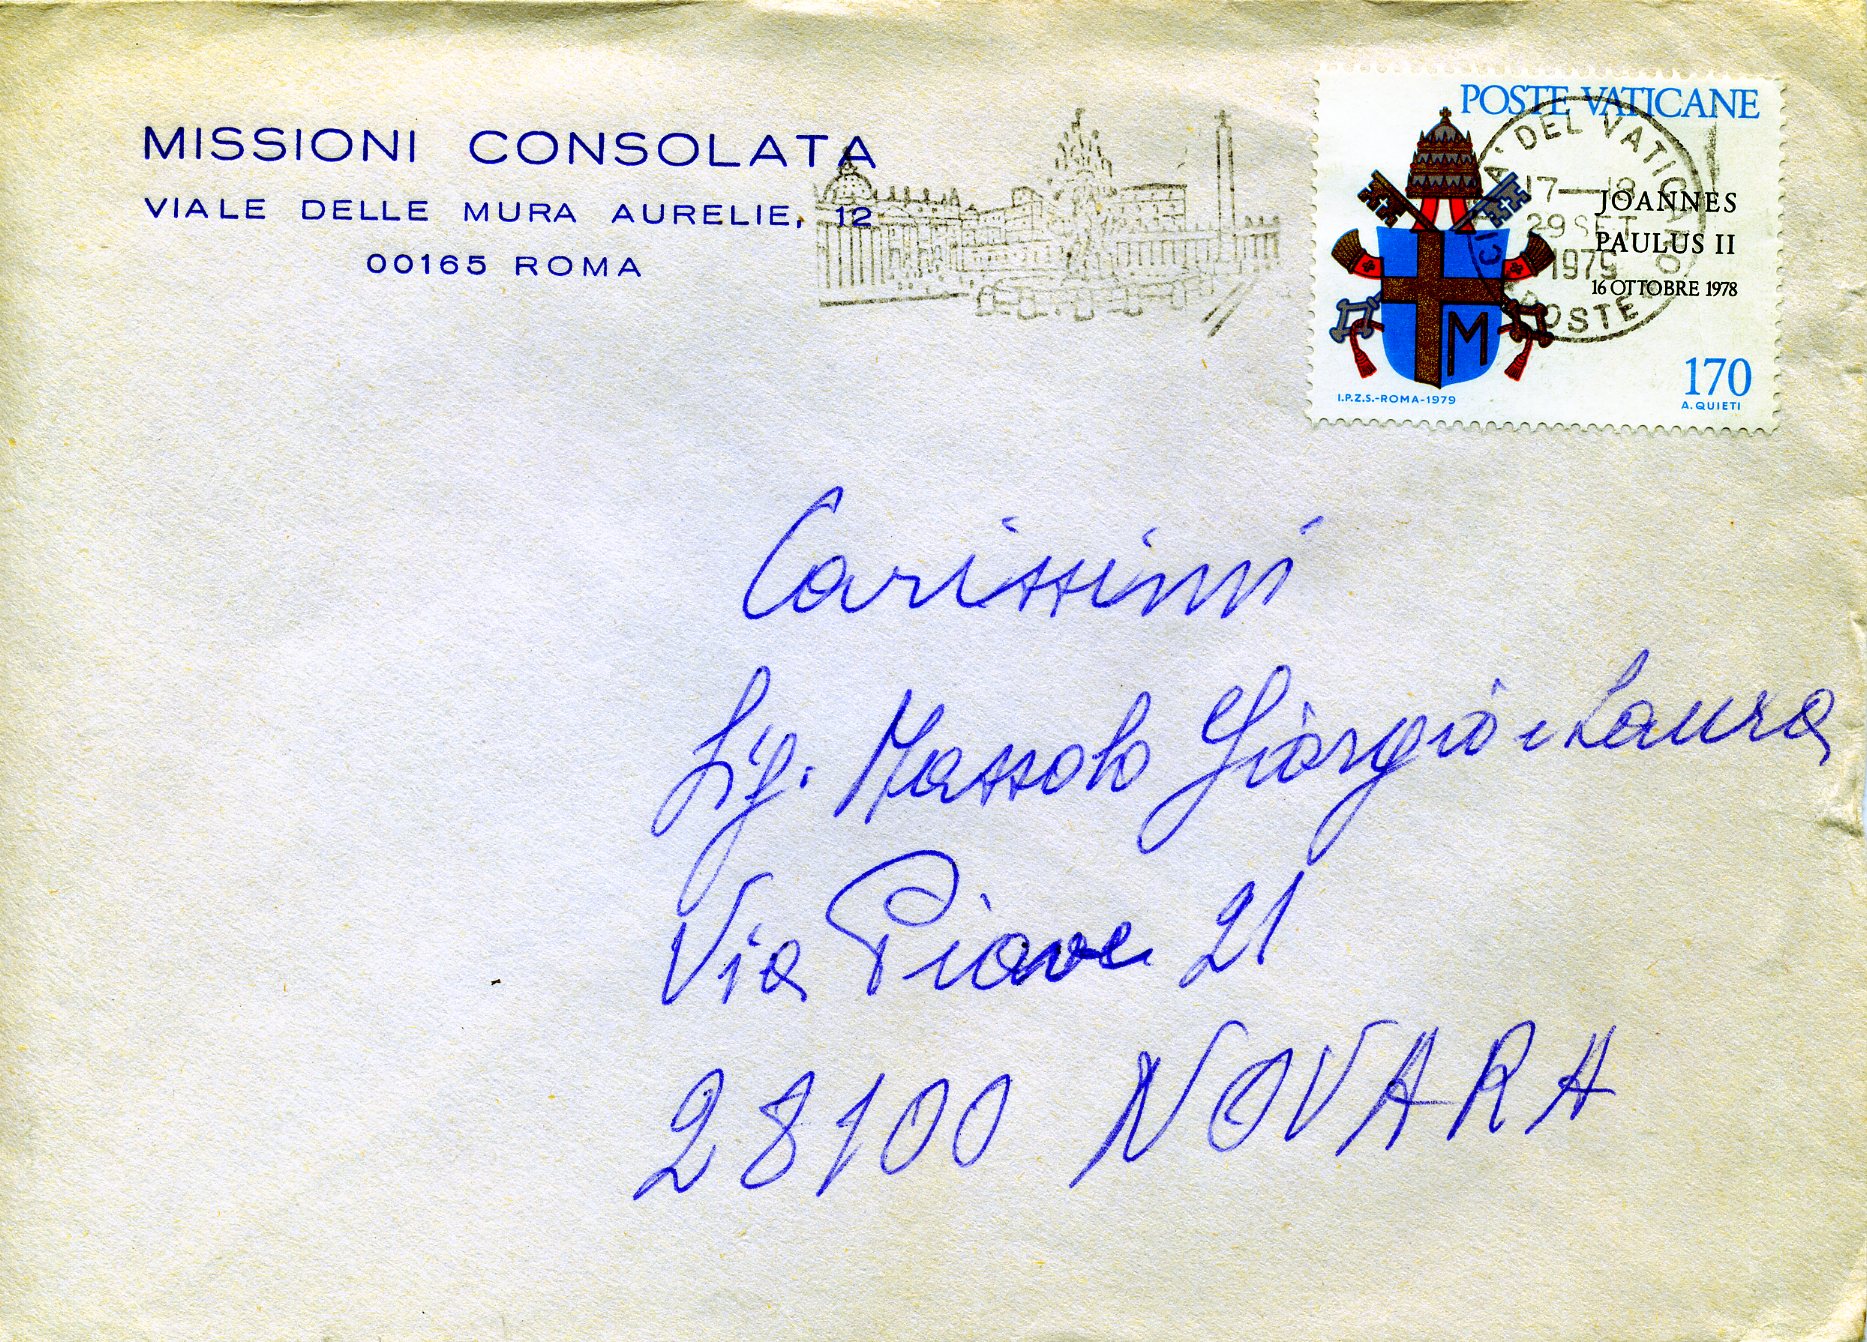 MISSIONI CONSOLATA
VIALE DELLE MURA AURELIE, 12
00165 ROMA
POSTE VATICANE
CITTA' DEL VATICANO
17—18
29 SET
1979
POSTE
JOANNES
PAULUS II
16 OTTOBRE 1978
M
170
I.P.Z.S.-ROMA-1979
A. QUIETI
Carissimi
Sig. Massolo Giorgio e Laura
Via Piave 21
28100 NOVARA